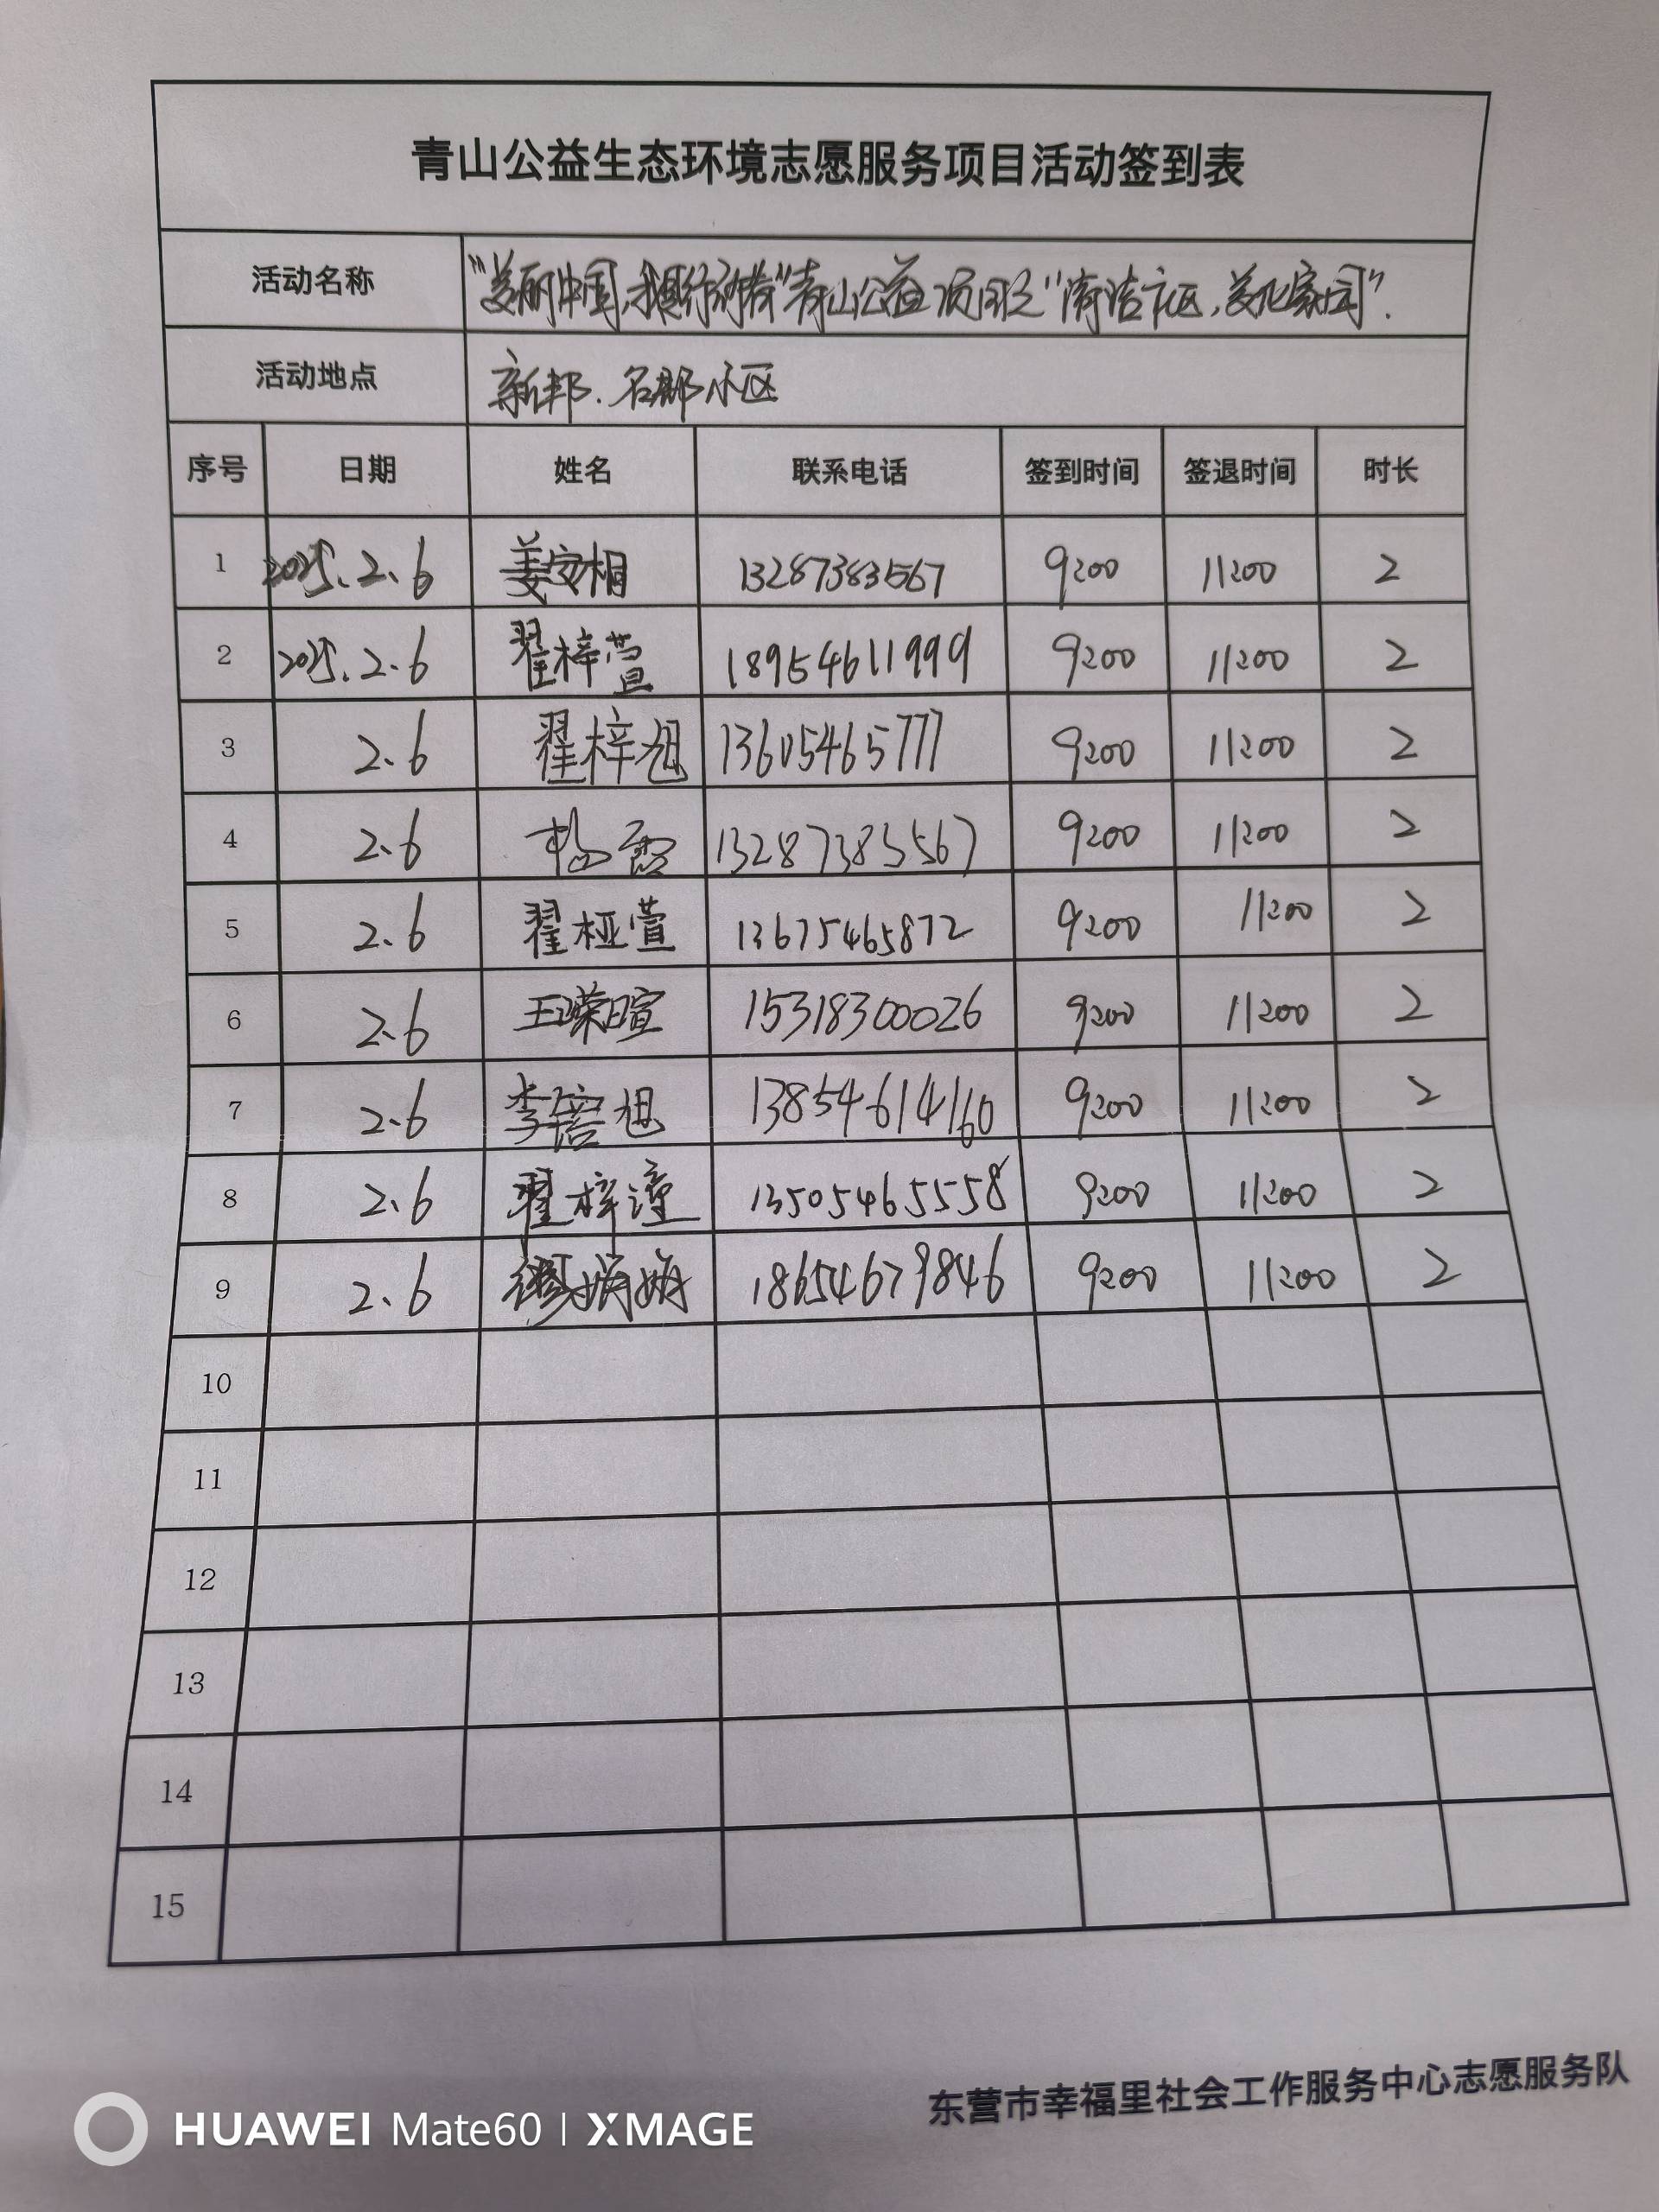 青山公益生态环境志愿服务项目活动签到表
活动名称 "美丽中国,我是行动者"青山公益项目之"清洁社区,美化家园".
活动地点 新邦.名郡小区
序号 日期 姓名 联系电话 签到时间 签退时间 时长
1 2025.2.6 姜安相 13287383567 9:00 11:00 2
2 2025.2.6 翟梓萱 18954611999 9:00 11:00 2
3 2.6 翟梓旭 13605465777 9:00 11:00 2
4 2.6 杨霞 13287383567 9:00 11:00 2
5 2.6 翟桠萱 13675465872 9:00 11:00 2
6 2.6 王嵘暄 15318300026 9:00 11:00 2
7 2.6 李锫旭 13854614160 9:00 11:00 2
8 2.6 翟梓潼 13505465558 9:00 11:00 2
9 2.6 娟娟 18654679846 9:00 11:00 2
10
11
12
13
14
15
东营市幸福里社会工作服务中心志愿服务队
HUAWEI Mate60 | XMAGE